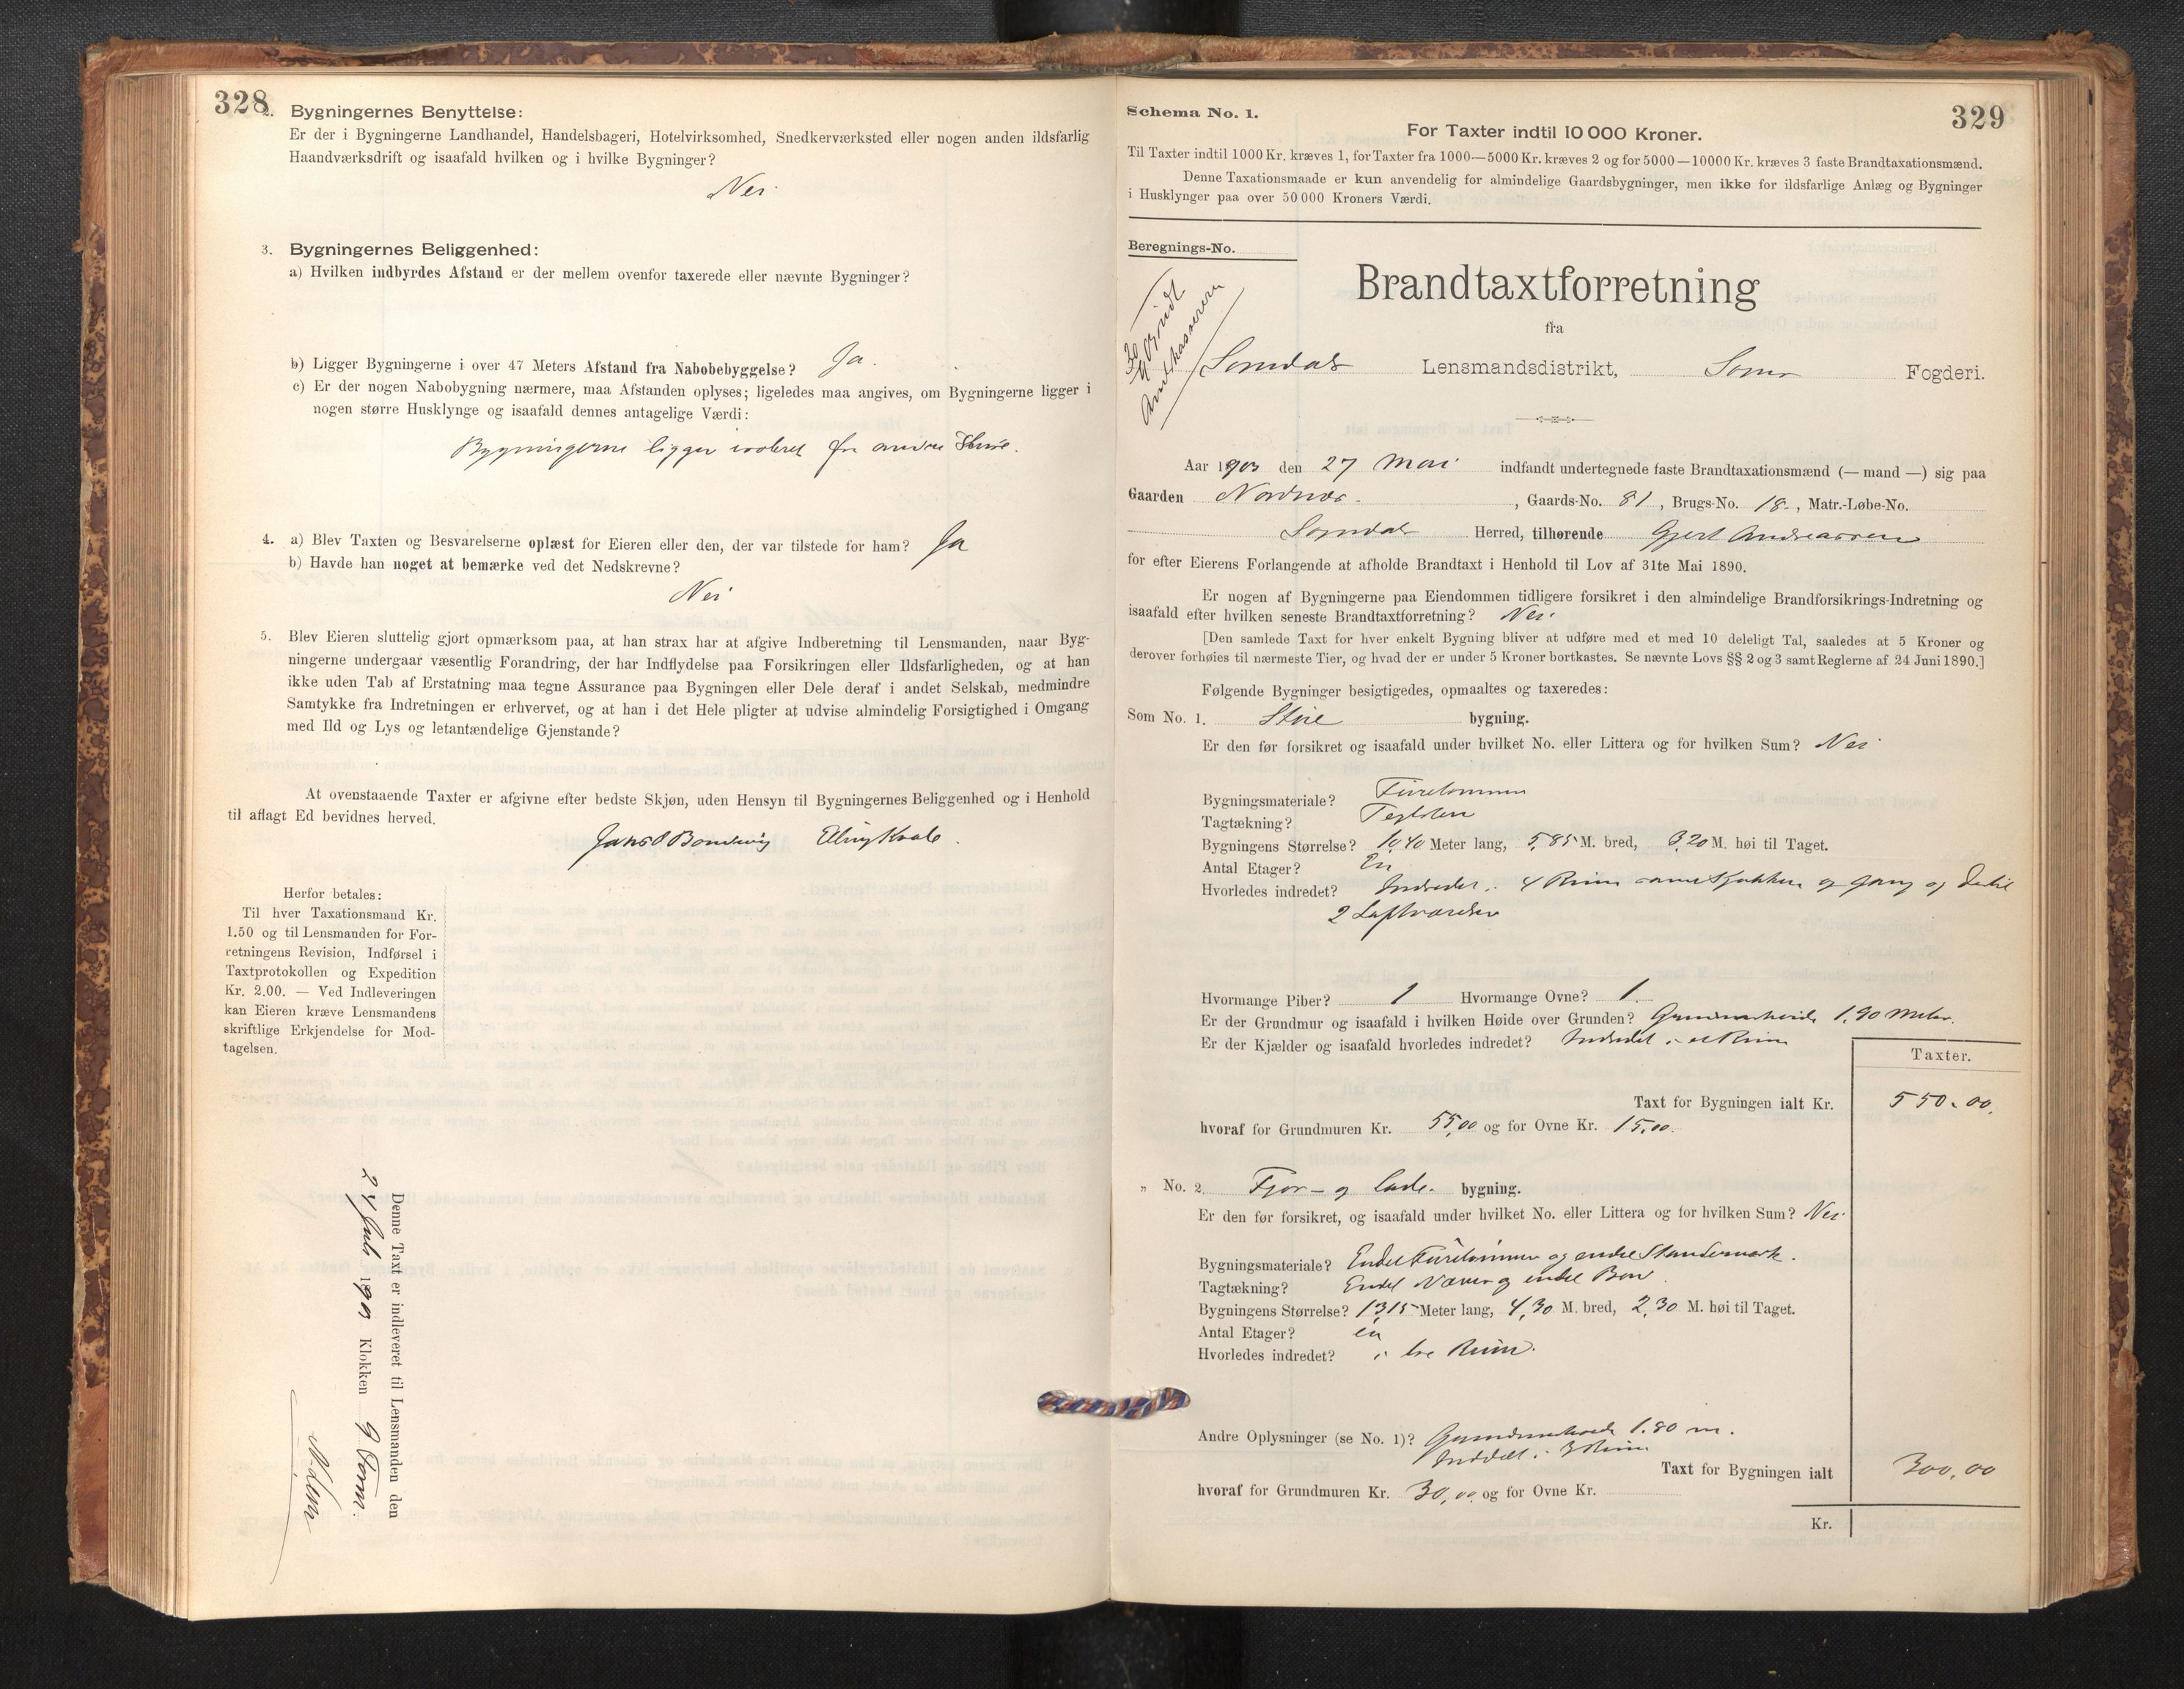 328
2. Bygningernes Benyttelse:
Er der i Bygningerne Landhandel, Handelsbageri, Hotelvirksomhed, Snedkerværksted eller nogen anden ildsfarlig
Haandværksdrift og isaafald hvilken og i hvilke Bygninger?
Nei.
3. Bygningernes Beliggenhed:
a) Hvilken indbyrdes Afstand er der mellem ovenfor taxerede eller nævnte Bygninger?
b) Ligger Bygningerne i over 47 Meters Afstand fra Nabobebyggelse? Ja.
c) Er der nogen Nabobygning nærmere, maa Afstanden oplyses; ligeledes maa angives, om Bygningerne ligger i
nogen større Husklynge og isaafald dennes antagelige Værdi:
Bygningerne ligger isoleret fra andre Huse.
4. a) Blev Taxten og Besvarelserne oplæst for Eieren eller den, der var tilstede for ham? Ja
b) Havde han noget at bemærke ved det Nedskrevne?
Nei
5. Blev Eieren sluttelig gjort opmærksom paa, at han strax har at afgive Indberetning til Lensmanden, naar Byg-
ningerne undergaar væsentlig Forandring, der har Indflydelse paa Forsikringen eller Ildsfarligheden, og at han
ikke uden Tab af Erstatning maa tegne Assurance paa Bygningen eller Dele deraf i andet Selskab, medmindre
Samtykke fra Indretningen er erhvervet, og at han i det Hele pligter at udvise almindelig Forsigtighed i Omgang
med Ild og Lys og letantændelige Gjenstande?
At ovenstaaende Taxter er afgivne efter bedste Skjøn, uden Hensyn til Bygningernes Beliggenhed og i Henhold
til aflagt Ed bevidnes herved.
Elling Kvale.
Herfor betales:
Til hver Taxationsmand Kr.
1.50 og til Lensmanden for For-
retningens Revision, Indførsel i
Taxtprotokollen og Expedition
Kr. 2.00. — Ved Indleveringen
kan Eieren kræve Lensmandens
skriftlige Erkjendelse for Mod-
tagelsen.
Denne Taxt er indleveret til Lensmanden den
24 Juli 1903 Klokken 9 Form.
329
Schema No. 1.
For Taxter indtil 10 000 Kroner.
Til Taxter indtil 1000 Kr. kræves 1, for Taxter fra 1000—5000 Kr. kræves 2 og for 5000—10000 Kr. kræves 3 faste Brandtaxationsmænd.
Denne Taxationsmaade er kun anvendelig for almindelige Gaardsbygninger, men ikke for ildsfarlige Anlæg og Bygninger
i Husklynger paa over 50 000 Kroners Værdi.
Beregnings-No.
Brandtaxtforretning
fra
Lensmandsdistrikt, Fogderi.
Aar 1903 den 27 Mai indfandt undertegnede faste Brandtaxationsmænd (— mand —) sig paa
Gaarden Nordnes, Gaards-No. 81, Brugs-No. 18, Matr.-Løbe-No.
Herred, tilhørende Gjert Andreassen
for efter Eierens Forlangende at afholde Brandtaxt i Henhold til Lov af 31te Mai 1890.
Er nogen af Bygningerne paa Eiendommen tidligere forsikret i den almindelige Brandforsikrings-Indretning og
isaafald efter hvilken seneste Brandtaxtforretning? Nei.
[Den samlede Taxt for hver enkelt Bygning bliver at udføre med et med 10 deleligt Tal, saaledes at 5 Kroner og
derover forhøies til nærmeste Tier, og hvad der er under 5 Kroner bortkastes. Se nævnte Lovs §§ 2 og 3 samt Reglerne af 24 Juni 1890.]
Følgende Bygninger besigtigedes, opmaaltes og taxeredes:
Som No. 1. bygning.
Er den før forsikret og isaafald under hvilket No. eller Littera og for hvilken Sum? Nei
Bygningsmateriale? Furetømmer
Tagtækning? Teglsten
Bygningens Størrelse? 10,40 Meter lang, 5,85 M. bred, 3,20 M. høi til Taget.
Antal Etager? En
Hvorledes indredet? Indredet i 4 Rum samt Kjøkken og Gang og dertil
2 Loftværelser
Hvormange Piber? 1 Hvormange Ovne? 1.
Er der Grundmur og isaafald i hvilken Høide over Grunden? Grundmurhøide 1,90 Meter.
Er der Kjælder og isaafald hvorledes indredet? Indredet i et Rum
Taxter.
Taxt for Bygningen ialt Kr. 550.00.
hvoraf for Grundmuren Kr. 55,00 og for Ovne Kr. 15,00.
„ No. 2. Fjøs- og Lade- bygning.
Er den før forsikret, og isaafald under hvilket No. eller Littera og for hvilken Sum? Nei
Bygningsmateriale? Endel Furetømmer og endel Standerverk.
Tagtækning? Endel Næver og endel Bord
Bygningens Størrelse? 13,15 Meter lang, 4,30 M. bred, 2,30 M. høi til Taget.
Antal Etager? en
Hvorledes indredet? i tre Rum.
Andre Oplysninger (se No. 1)? Grundmurhøide 1.80 m.
Inddelt i 3 Rum
Taxt for Bygningen ialt 300,00
hvoraf for Grundmuren Kr. 30,00 og for Ovne Kr.
Kr.